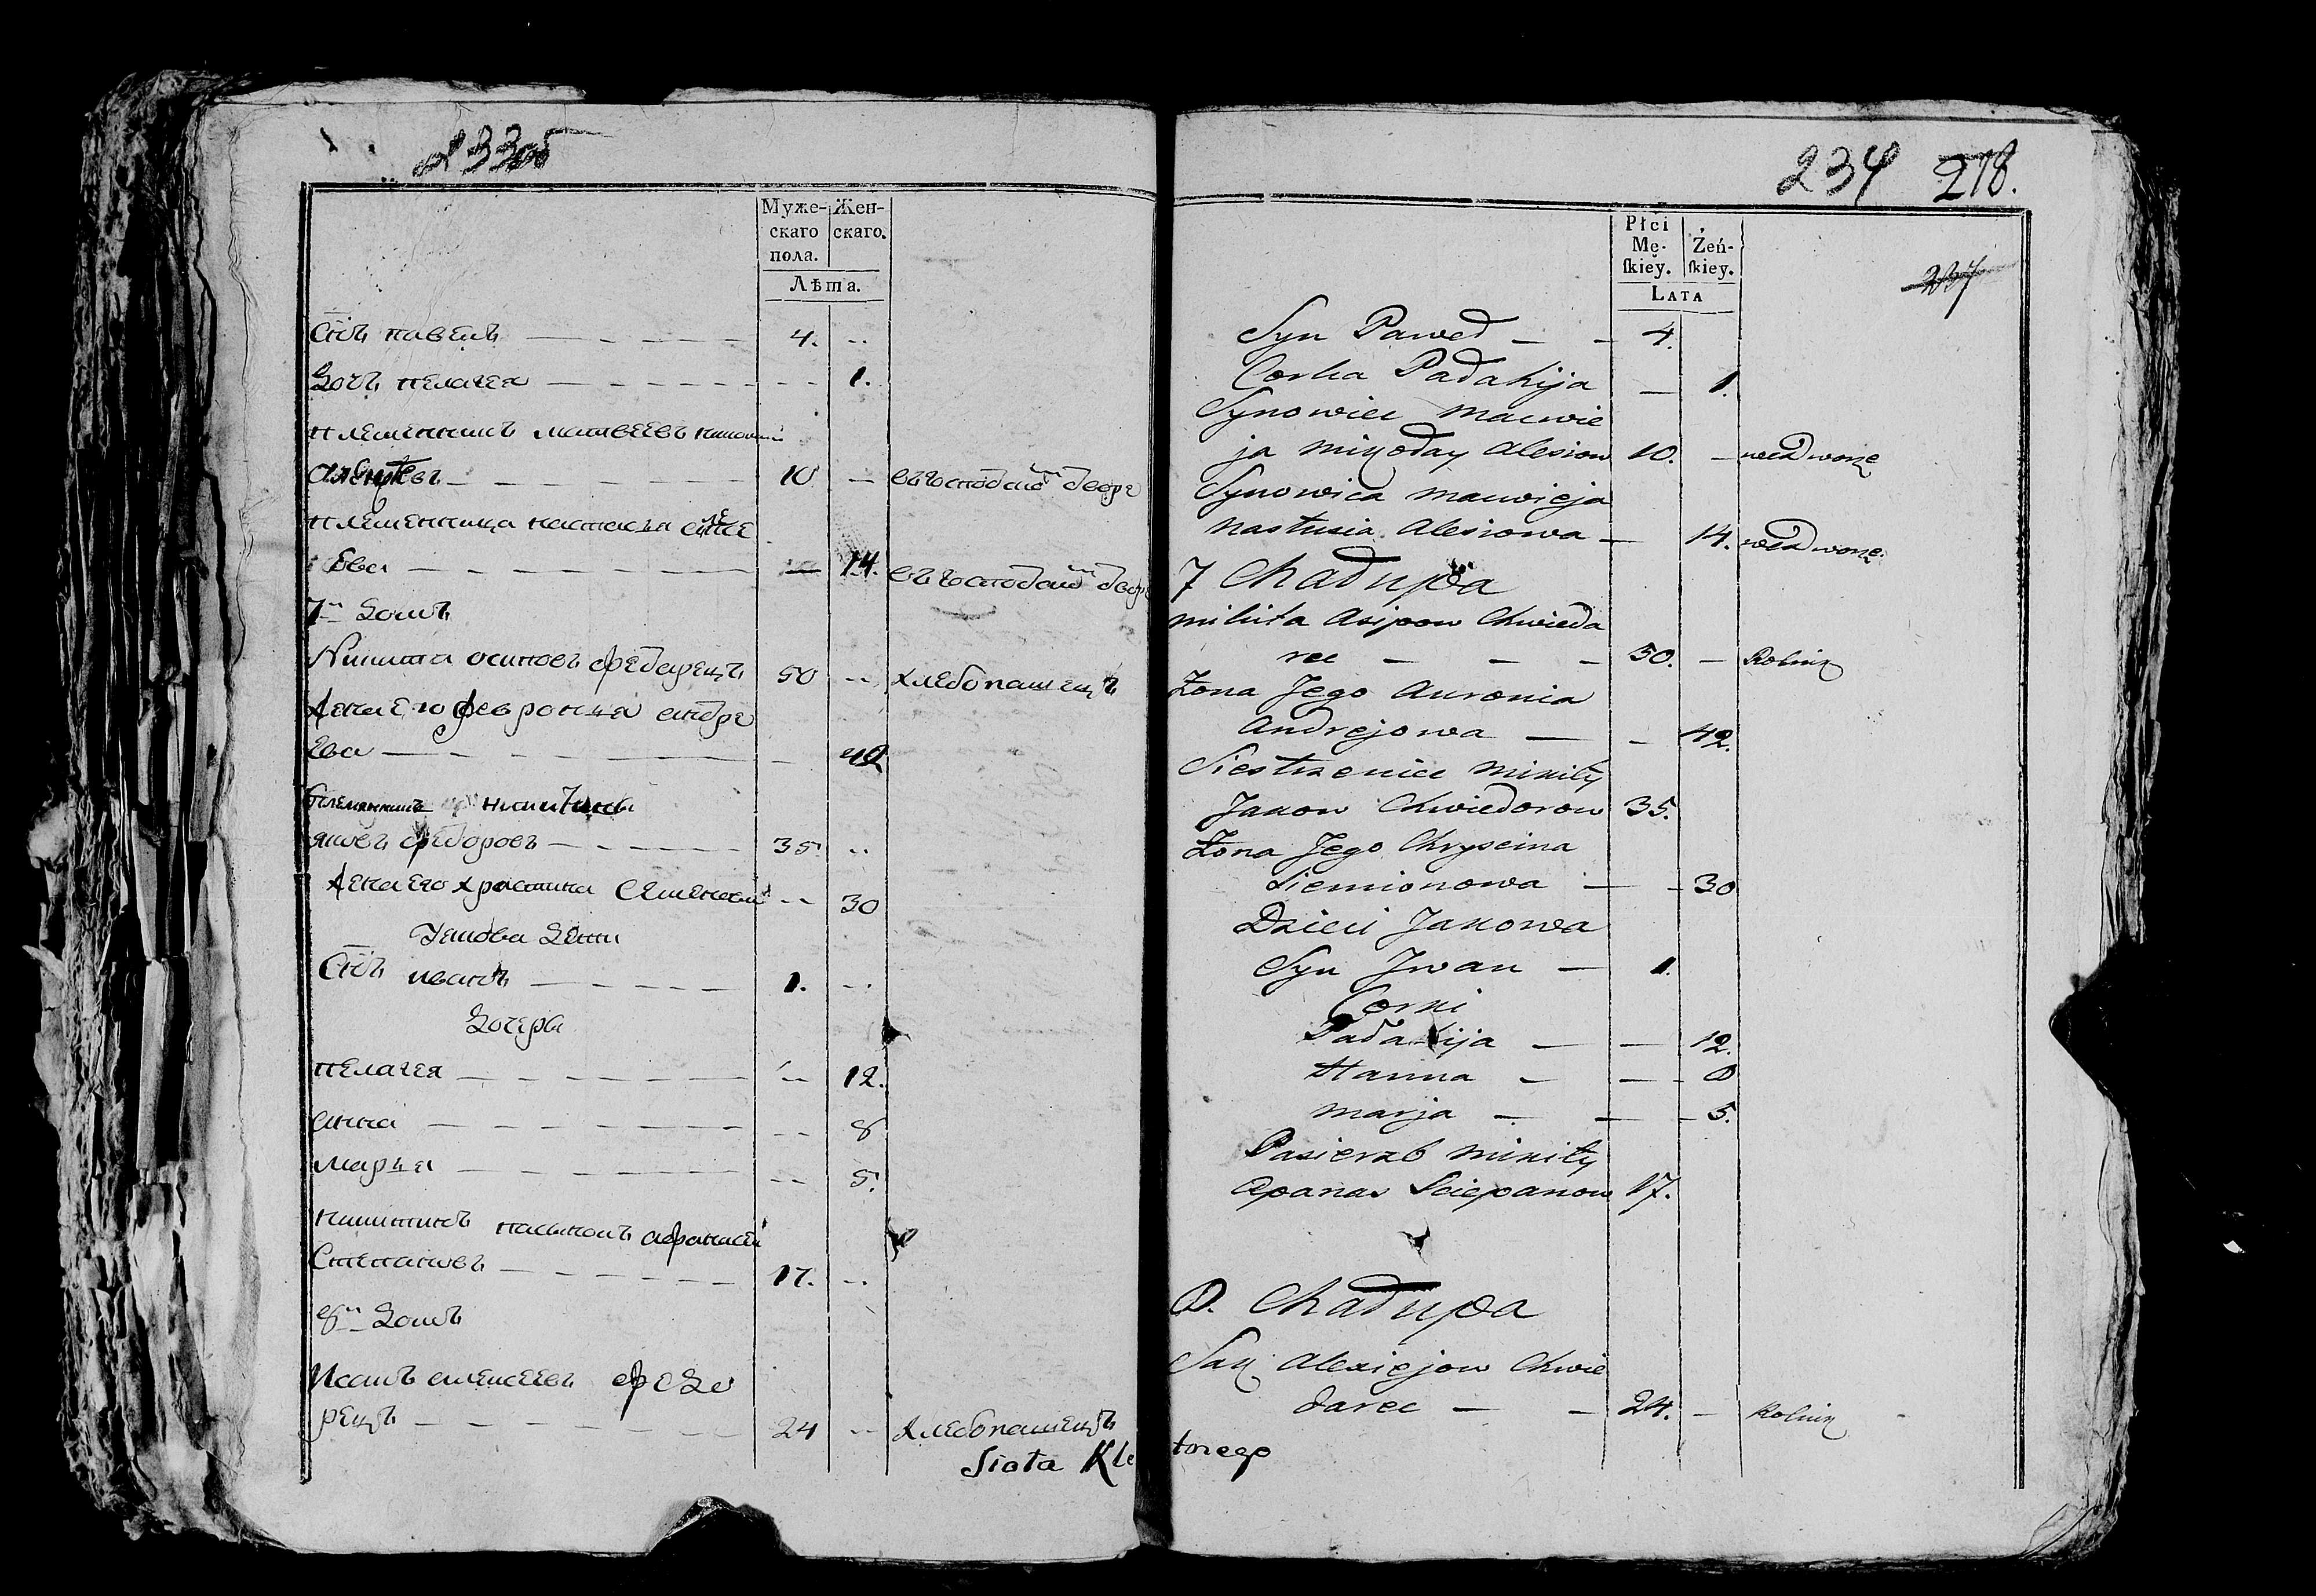 233об
Муже- Жен-
скаго скаго.
пола.
Лѣта.
Снъ павелъ 4.
Дочь пелагея 1.
племенникъ матвеевъ николай
алексеевъ 10 — въ господскомъ дворе
племенница настасья алексе
ева — 14. въ господскомъ дворе
7й Домъ
Никита осиповъ федарецъ 50 хлебопашецъ
жена его февронья андре
ева 42
племянникъ никитинъ
яковъ федоровъ 35.
жена его христина семенова 30
Якова Дети
Снъ иванъ 1.
Дочери
пелагея 12.
анна 8
марья 5.
никитинъ пасынокъ афанасей
Степановъ 17.
8й Домъ
Исакъ алексеевъ федо
рецъ 24 хлебопашецъ
Siota Kle
234 218.
237
Płci
Mę- Żeń-
ſkiey. ſkiey.
LATA
Syn Paweł — 4.
Corka Pałahija — 1.
Synowiec Maciwie
ja Mikołay Alesiow 10. — we Dworze
Synowica Maciwieja
Nastusia Alesiowa — 14. we Dworze
7 Chałupa
Mikita Asipow Chwieda
rec — 50. — Rolnik
Żona Jego Auronia
Andrejowa — 42.
Siestrzeniec Mikity
Jakow Chwiedorow 35.
Żona Jego Chryscina
Siemionowa — 30
Dzieci Jakowa
Syn Jwan — 1.
Corki
Pałahija — 12.
Hanna — 8
Marja — 5.
Pasierzb Mikity
Apanas Sciepanow 17.
8. Chałupa
Sak Alexiejow Chwie
darec — 24. — Rolnik
tnego